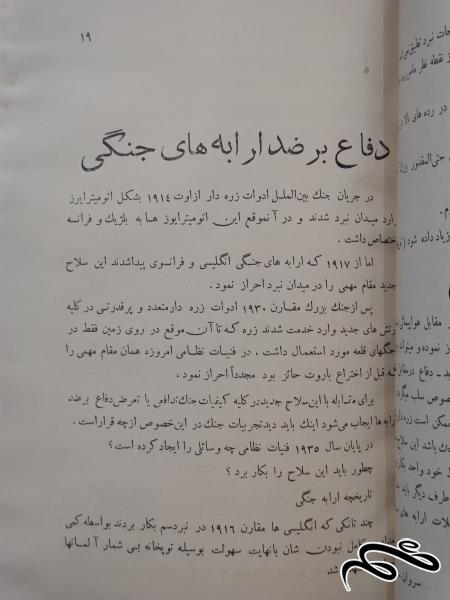 ۱۹
دفاع بر ضد ارابه های جنگی
در جریان جنك بین‌الملل ادوات زره دار از اوت ۱۹۱۴ بشکل اتومیترایوز
وارد میدان نبرد شدند و در آنموقع این اتومیترایوز ها به بلژیك و فرانسه
اختصاص داشت .
اما از ۱۹۱۷ که ارابه های جنگی انگلیسی و فرانسوی پیدا شدند این سلاح
جدید مقام مهمی را در میدان نبرد احراز نمود .
پس از جنك بزرك مقارن ۱۹۳۰ ادوات زره دار متعدد و پر قدرتی در کلیه
ارتش های جدید وارد خدمت شدند زره که تا آن موقع در روی زمین فقط در
جنگهای قلعه مورد استعمال داشت ، در فنیات نظامی امروزه همان مقام مهمی را
که قبل از اختراع باروت حائز بود مجدداً احراز نمود ،
برای مقابله با این سلاح جدید در کلیه کیفیات جنك تدافعی یا تعرض دفاع بر ضد
ارابه ها ایجاب می‌شود اینك باید دید تجربیات جنك در این خصوص از چه قرار است .
در پایان سال ۱۹۳۵ فنیات نظامی چه وسائلی را ایجاد کرده است ؟
چطور باید این سلاح را بکار برد ؟
تاریخچه ارابه جنگی
چند تانکی که انگلیسی ها مقارن ۱۹۱۶ در نبرد سم بکار بردند بواسطه کمی
کامل نبودن شان بانهایت سهولت بوسیله توپخانه بی شمار آلمانها
شد
در رده های بالا
حتی‌المقدور
زیاد داده شود
مقابل هواپیمای
از نموده و میتواند
دفاع در مقابل
خصوص سلب میگردد
ممکن است زره
باشد این سلاح
خود واحد بکار
طرف دیگر باید
ارابه های